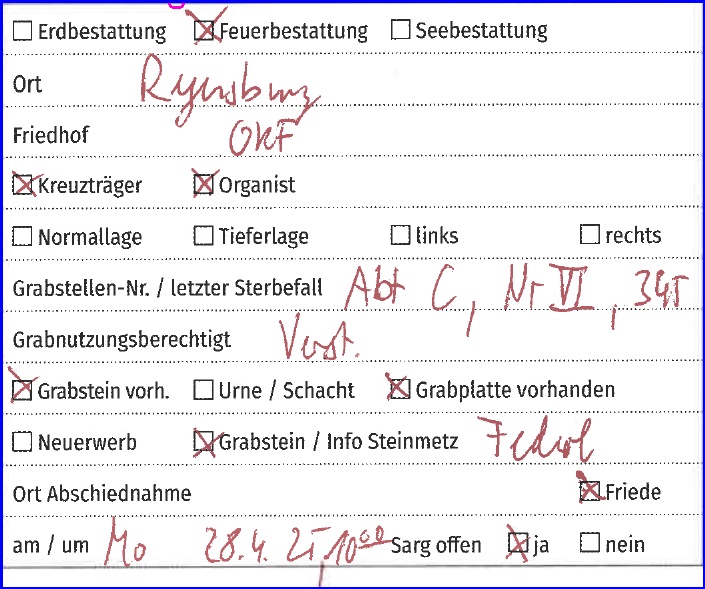 ☐ Erdbestattung ☒ Feuerbestattung ☐ Seebestattung
Ort Regensburg
Friedhof OKF
☒ Kreuzträger ☒ Organist
☐ Normallage ☐ Tieferlage ☐ links ☐ rechts
Grabstellen-Nr. / letzter Sterbefall Abt C, Nr VI, 345
Grabnutzungsberechtigt Verst.
☒ Grabstein vorh. ☐ Urne / Schacht ☒ Grabplatte vorhanden
☐ Neuerwerb ☒ Grabstein / Info Steinmetz
Ort Abschiednahme ☒ Friede
am / um Mo 28.4. 25, 10 00 Sarg offen ☒ ja ☐ nein